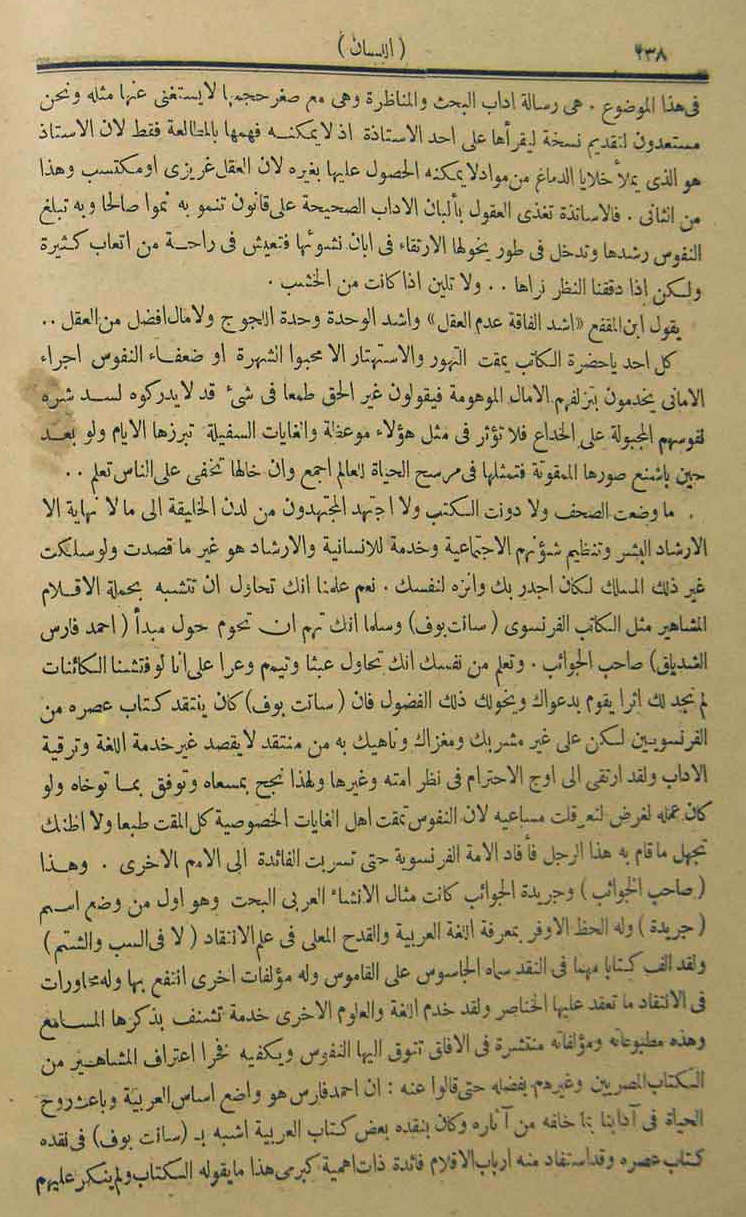 ٤٣٨ (اللسان)
فى هذا الموضوع . هى رسالة اداب البحث والمناظرة وهى مع صغر حجمها لا يستغنى عنها مثله ونحن
مستعدون لتقديم نسخة ليقرأها على احد الاستاذة اذ لا يمكنه فهمها بالمطالعة فقط لان الاستاذ
هو الذى يملأ خلايا الدماغ من مواد لا يمكنه الحصول عليها بغيره لان العقل غريزى او مكتسب وهذا
من الثانى . فالاساتذة تغذى العقول بألبان الاداب الصحيحة على قانون تنمو به نموا صالحا وبه تبلغ
النفوس رشدها وتدخل فى طور يخولها الارتقاء فى ابان نشوئها فتعيش فى راحة من اتعاب كثيرة
ولكن إذا دققنا النظر نراها . . ولا تلين اذا كانت من الخشب .
يقول ابن المقفع «اشد الفاقة عدم العقل» واشد الوحدة وحدة اللجوج ولا مال افضل من العقل . .
كل احد ياحضرة الكاتب يمقت التهور والاستهتار الا محبوا الشهرة او ضعفاء النفوس اجراء
الامانى يخدمون بتزلفهم الامال الموهومة فيقولون غير الحق طمعا فى شئ قد لا يدركوه لسد شره
نفوسهم المجبولة على الخداع فلا تؤثر فى مثل هؤلاء موعظة والغايات السفيلة تبرزها الايام ولو بعد
حين باشنع صورها الممقوتة فتمثلها فى مرسح الحياة للعالم اجمع وان خالها تخفى على الناس تعلم . .
. ما وضعت الصحف ولا دونت الكتب ولا اجتهد المجتهدون من لدن الخليقة الى ما لا نهاية الا
لارشاد البشر وتنظيم شؤنهم الاجتماعية وخدمة للانسانية والارشاد هو غير ما قصدت ولو سلكت
غير ذلك المسلك لكان اجدر بك وانزه لنفسك . نعم علمنا انك تحاول ان تتشبه بحملة الاقلام
المشاهير مثل الكاتب الفرنسوى (سانت بوف) وسلما انك تهم ان تحوم حول مبدأ (احمد فارس
الشدياق) صاحب الجوائب . وتعلم من نفسك انك تحاول عبثا وتيمم وعرا على انا لو فتشنا الكائنات
لم نجد لك اثرا يقوم بدعواك ويخولك ذلك الفضول فان (سانت بوف) كان ينتقد كتاب عصره من
الفرنسويين لكن على غير مشربك ومغزاك وناهيك به من منتقد لا يقصد غير خدمة اللغة وترقية
الاداب ولقد ارتقى الى اوج الاحترام فى نظر امته وغيرها ولهذا نجح بمسعاه وتوفق بما توخاه ولو
كان عمله لغرض لتعرقلت مساعيه لان النفوس تمقت اهل الغايات الخصوصية كل المقت طبعا ولا اظنك
تجهل ما قام به هذا الرجل فأفاد الامة الفرنسوية حتى تسربت الفائدة الى الامم الاخرى . وهذا
(صاحب الجوائب) وجريدة الجوائب كانت مثال الانشاء العربى البحت وهو اول من وضع اسم
(جريدة) وله الحظ الاوفر بمعرفة اللغة العربية والقدح المعلى فى علم الانتقاد (لا فى السب والشتم)
ولقد الف كتابا مهما فى النقد سماه الجاسوس على القاموس وله مؤلفات اخرى انتفع بها وله محاورات
فى الانتقاد ما تعقد عليها الخناصر ولقد خدم اللغة والعلوم الاخرى خدمة تشنف بذكرها المسامع
وهذه مطبوعاته ومؤلفاته منتشرة فى الافاق تتوق اليها النفوس ويكفيه فخرا اعتراف المشاهير من
الكتاب المصريين وغيرهم بفضله حتى قالوا عنه : ان احمد فارس هو واضع اساس العربية وباعث روح
الحياة فى آدابنا بما خلفه من آثاره وكان بنقده بعض كتاب العربية اشبه بـ (سانت بوف) فى نقده
كتاب عصره وقد استفاد منه ارباب الاقلام فائدة ذات اهمية كبرى هذا ما يقوله الكتاب ولم ينكر عليهم